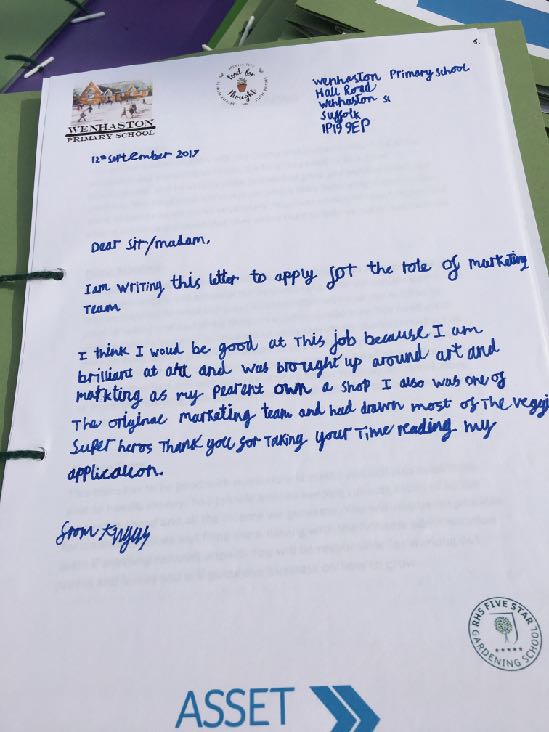 6.
WENHASTON
PRIMARY SCHOOL
food for
thought
Wenhaston Primary School
Hall Road
Wenhaston
Suffolk
IP19 9EP
12th September 2017
Dear Sir/madam,
I am writing this letter to apply for the role of marketing
Team
I think I woud be good at This job because I am
brilliant at art and was brought up around art and
markting as my Pearent own a shop I also was one of
The original marketing team and had drawn most of The veggi
Super heros Thank you for Taking your Time reading my
applicaicon.
from
RHS FIVE STAR
GARDENING SCHOOL
ASSET